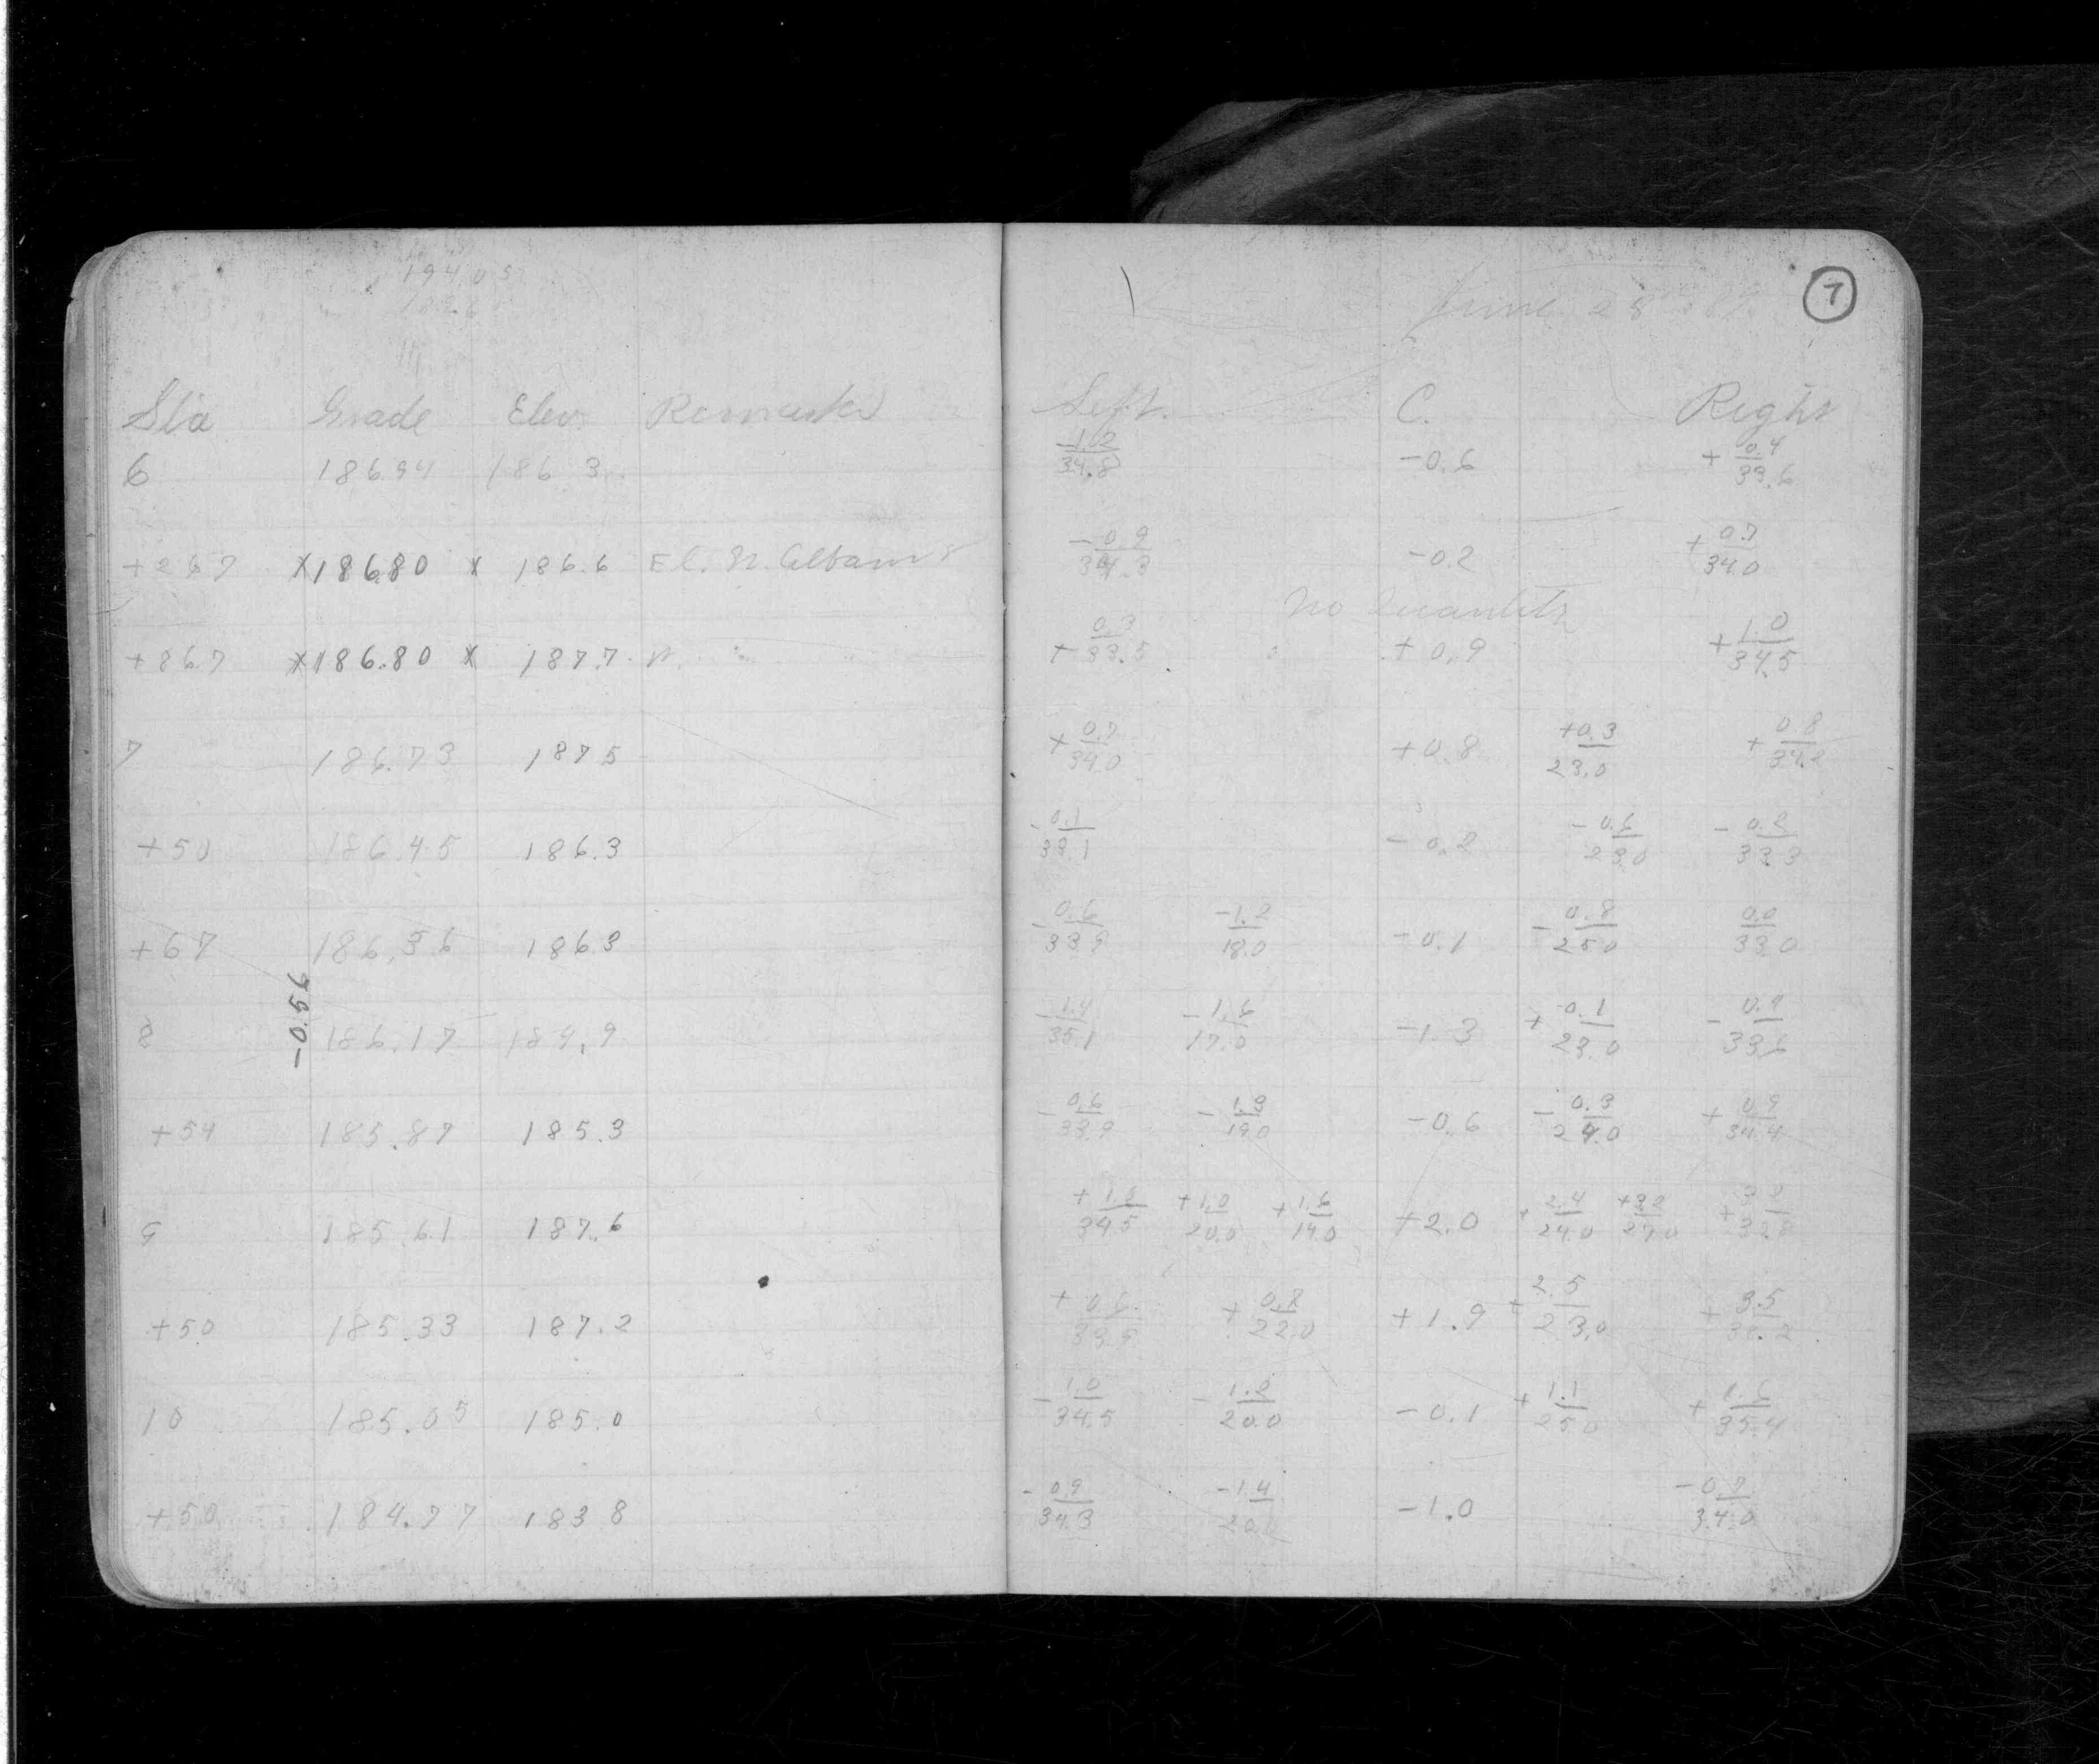 194.05
7
June 28
Sta Grade Elev. Remarks Left. C. Right
6 186.94 186.3 -1.2/34.8 -0.6 +0.4/33.6
+26.7 x186.80 x 186.6 El. N. Albany -0.9/34.3 -0.2 +0.7/34.0
No Quantity
+86.7 x186.80 x 187.7 +0.3/33.5 +0.9 +1.0/34.5
7 186.73 187.5 +0.7/34.0 +0.8 +0.3/23.0 +0.8/34.2
+50 186.45 186.3 -0.1/33.1 -0.2 -0.6/23.0 -0.2/33.3
+67 186.36 186.3 -0.6/33.9 -1.2/18.0 -0.1 -0.8/25.0 0.0/33.0
-0.56
8 186.17 184.9 -1.4/35.1 -1.6/17.0 -1.3 +0.1/23.0 -0.4/33.6
+54 185.87 185.3 -0.6/33.9 -1.3/19.0 -0.6 -0.3/24.0 +0.9/34.4
9 185.61 187.6 +1.0/34.5 +1.0/20.0 +1.6/14.0 +2.0 +2.4/24.0 +3.2/27.0
+50 185.33 187.2 +0.6/33.9 +0.8/22.0 +1.9 +2.5/23.0 +3.5/38.2
10 185.05 185.0 -1.0/34.5 -1.0/20.0 -0.1 +1.1/25.0 +1.6/35.4
+50 184.77 183.8 -0.9/34.3 -1.4/20.0 -1.0 -0.7/34.0